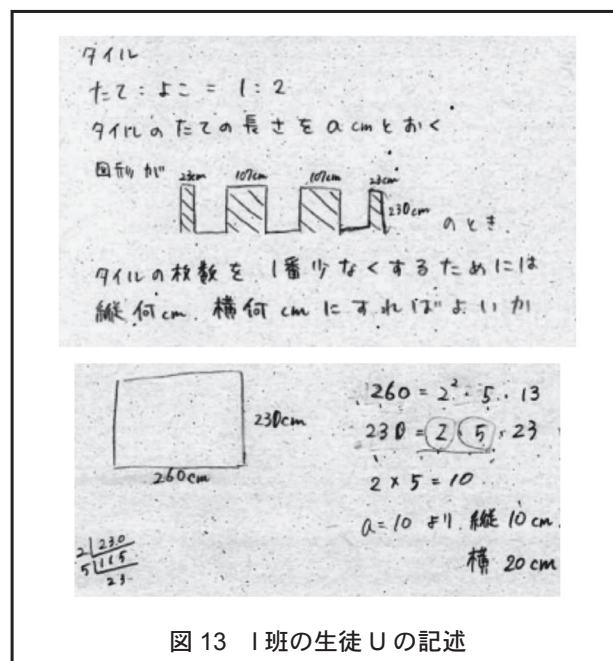 タイル
たて:よこ = 1:2
タイルのたての長さを a cm とおく
図形が
23cm 107cm 107cm 23cm
230cm
のとき.
タイルの枚数を 1番少なくするためには
縦何cm. 横何cmにすればよいか
230cm
260cm
260 = 2²・5・13
230 = 2・5・23
2 × 5 = 10
a = 10 より. 縦 10 cm.
横 20 cm
2 230
5 115
23
図 13 I 班の生徒 U の記述